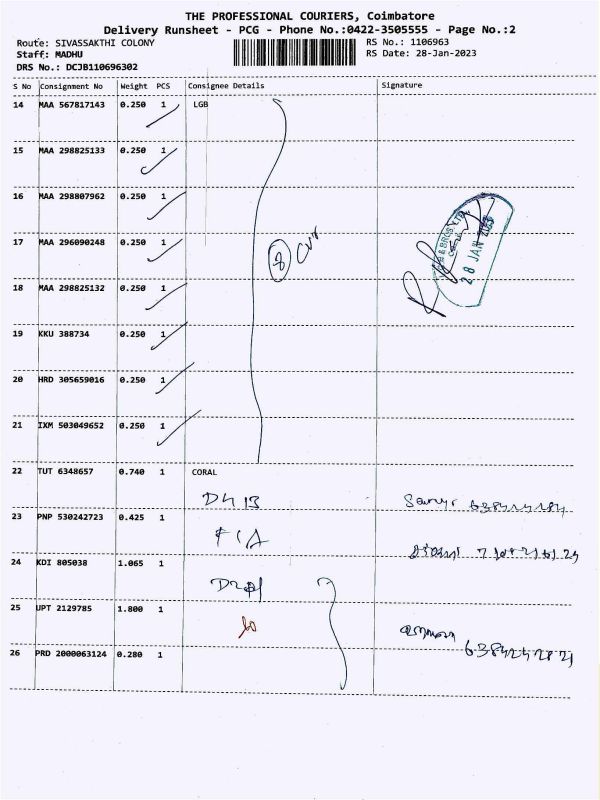 THE PROFESSIONAL COURIERS, Coimbatore
Delivery Runsheet - PCG - Phone No.:0422-3505555 - Page No.:2
Route: SIVASSAKTHI COLONY RS No.: 1106963
Staff: MADHU RS Date: 28-Jan-2023
DRS No.: DCJB110696302
S No Consignment No Weight PCS Consignee Details Signature
14 MAA 567817143 0.250 1 LGB
15 MAA 298825133 0.250 1
16 MAA 298807962 0.250 1
28 JAN 2023
17 MAA 296090248 0.250 1
8
18 MAA 298825132 0.250 1
19 KKU 388734 0.250 1
20 HRD 305659016 0.250 1
21 IXM 503049652 0.250 1
22 TUT 6348657 0.740 1 CORAL
D4 B
23 PNP 530242723 0.425 1
F1A
24 KDI 805038 1.065 1
25 UPT 2129785 1.800 1
26 PRD 2000063124 0.280 1